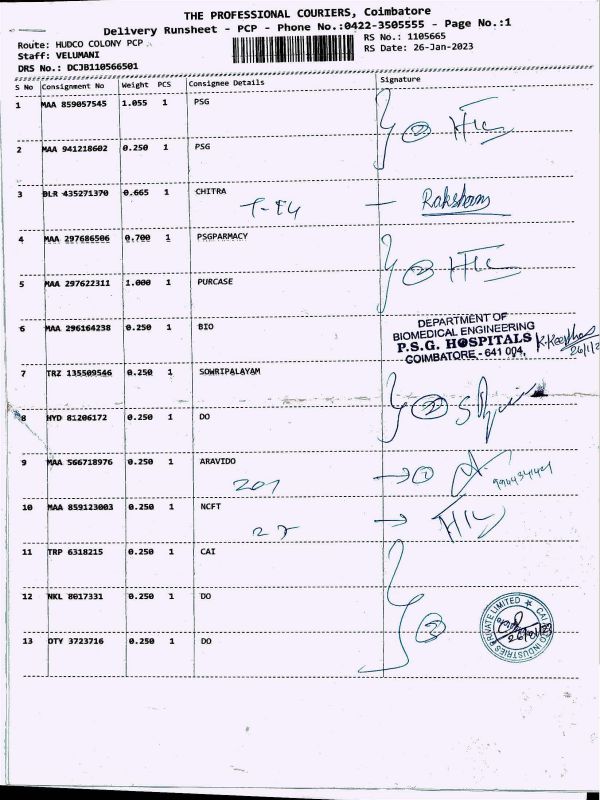 THE PROFESSIONAL COURIERS, Coimbatore
Delivery Runsheet - PCP - Phone No.:0422-3505555 - Page No.:1
Route: HUDCO COLONY PCP
RS No.: 1105665
Staff: VELUMANI
RS Date: 26-Jan-2023
DRS No.: DCJB110566501
S No Consignment No Weight PCS Consignee Details Signature
1 MAA 859057545 1.055 1 PSG
2 MAA 941218602 0.250 1 PSG
3 BLR 435271370 0.665 1 CHITRA
Raksham
4 MAA 297686506 0.700 1 PSGPARMACY
5 MAA 297622311 1.000 1 PURCASE
6 MAA 296164238 0.250 1 BIO
DEPARTMENT OF
BIOMEDICAL ENGINEERING
P.S.G. HOSPITALS
COIMBATORE - 641 004,
7 TRZ 135509546 0.250 1 SOWRIPALAYAM
8 HYD 81206172 0.250 1 DO
2
9 MAA 566718976 0.250 1 ARAVIDO
201
1
10 MAA 859123003 0.250 1 NCFT
11 TRP 6318215 0.250 1 CAI
12 NKL 8017331 0.250 1 DO
13 OTY 3723716 0.250 1 DO